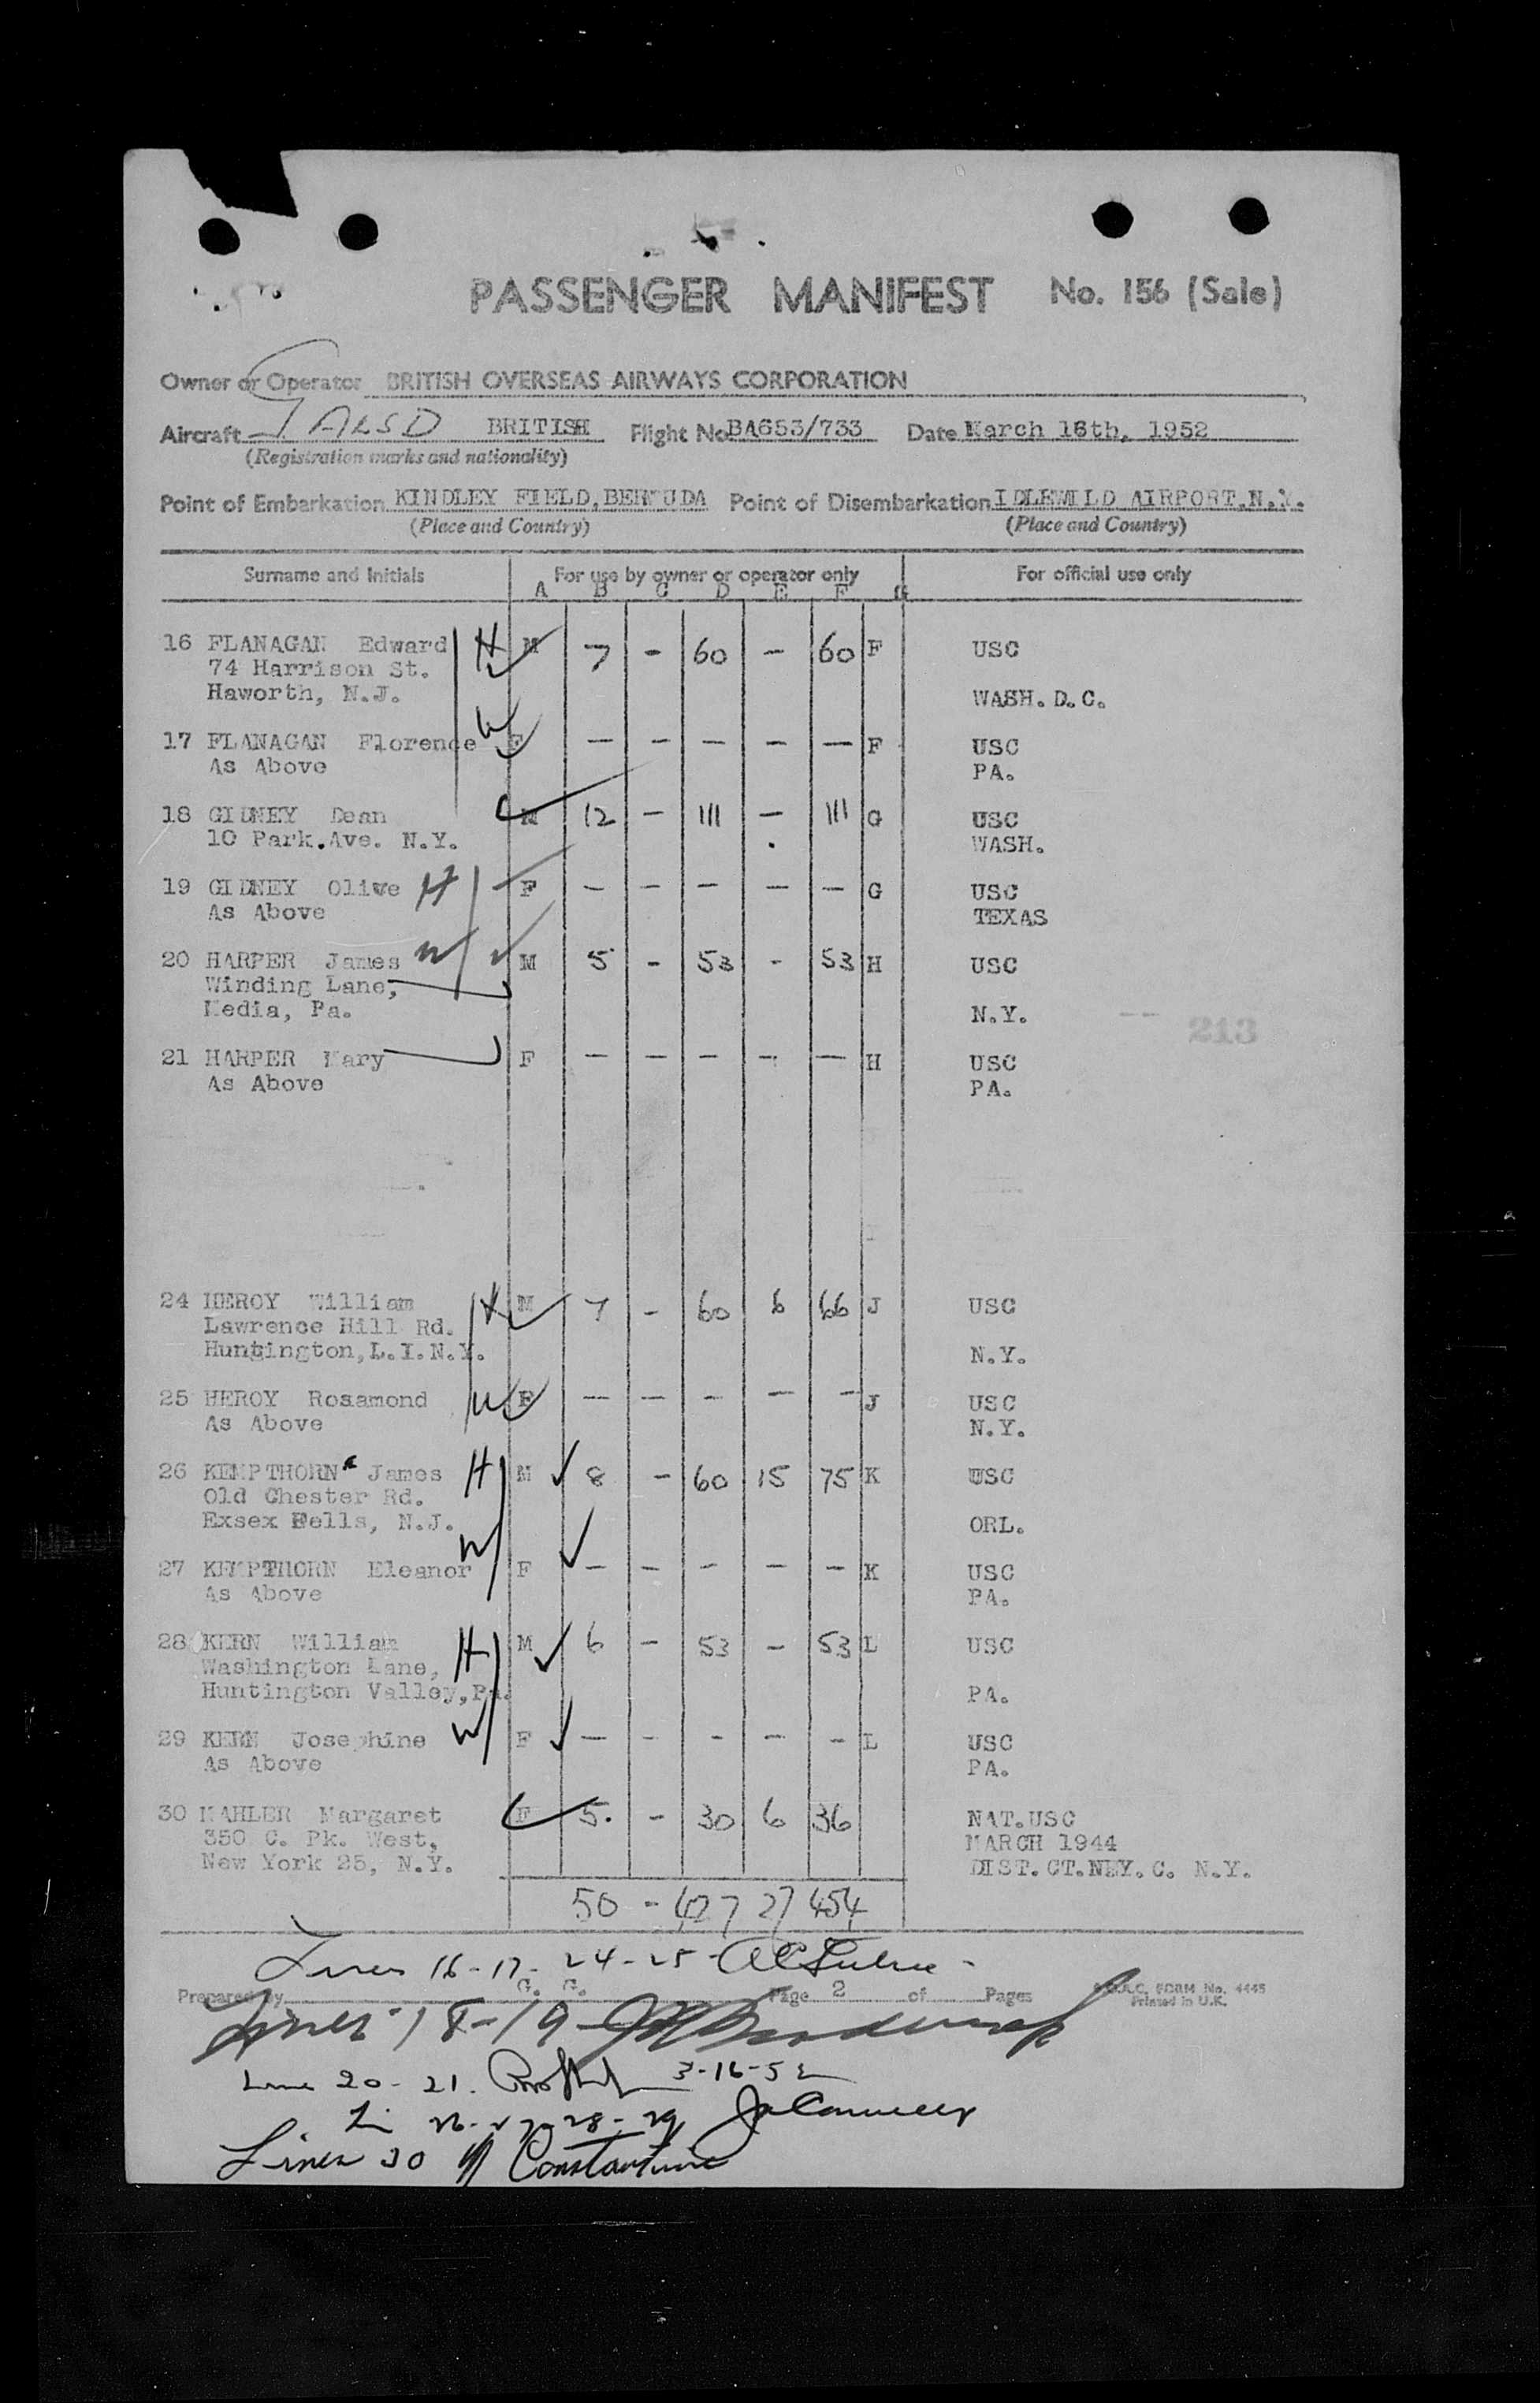 PASSENGER MANIFEST No. 156 (Sale)
Owner or Operator BRITISH OVERSEAS AIRWAYS CORPORATION
Aircraft G ALSD BRITISH Flight No. BA653/733 Date March 16th, 1952
(Registration marks and nationality)
Point of Embarkation KINDLEY FIELD, BERMUDA Point of Disembarkation IDLEWILD AIRPORT, N.Y.
(Place and Country) (Place and Country)
Surname and Initials For use by owner or operator only For official use only
A B C D E F G
16 FLANAGAN Edward H M 7 - 60 - 60 F USC
74 Harrison St.
Haworth, N.J. WASH. D.C.
17 FLANAGAN Florence W F - - - - - F USC
As Above PA.
18 GIDNEY Dean M 12 - 111 - 111 G USC
10 Park.Ave. N.Y. WASH.
19 GIDNEY Olive H F - - - - - G USC
As Above TEXAS
20 HARPER James W M 5 - 53 - 53 H USC
Winding Lane,
Media, Pa. N.Y.
213
21 HARPER Mary F - - - - - H USC
As Above PA.
24 HEROY William H M 7 - 60 6 66 J USC
Lawrence Hill Rd.
Huntington, L.I.N.Y. N.Y.
25 HEROY Rosamond W F - - - - - J USC
As Above N.Y.
26 KEMPTHORNE James H M 8 - 60 15 75 K USC
Old Chester Rd.
Exsex Fells, N.J. ORL.
27 KEMPTHORN Eleanor W F - - - - - K USC
As Above PA.
28 KERN William H M 6 - 53 - 53 L USC
Washington Lane,
Huntington Valley, Pa. PA.
29 KERN Josephine W F - - - - - L USC
As Above PA.
30 MAHLER Margaret F 5. - 30 6 36 NAT.USC
350 C. Pk. West, MARCH 1944
New York 25, N.Y. DIST.CT.NEY.C. N.Y.
50 - 427 27 454
Lines 16-17- 24-25
Prepared by G. G. Page 2 of Pages B.O.A.C. FORM No. 4445
Printed in U.K.
Lines 18-19-
Line 20-21. 3-16-52
Li 26-27-28-29
Lines 30 Constantine